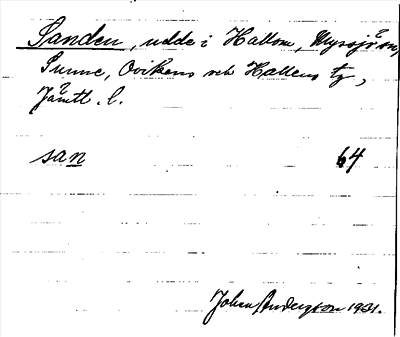 Sanden, udde i Hallom, Myssjö sn,
Sunne, Ovikens och Hallens tg,
Jämtl. l.
san 64
Johan Anderson 1931.